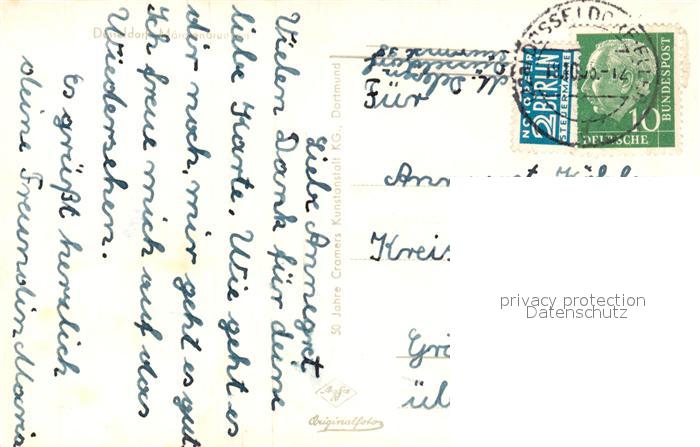 Düsseldorf Märchenbrunnen
Liebe Annegret
Vielen Dank für deine
liebe Karte. Wie geht es
dir noch, mir geht es gut
Ich freue mich auf das
Wiedersehen.
Es grüßt herzlich
deine Freundin Maria
50 Jahre Cramers Kunstanstalt KG., Dortmund
Originalfoto
Für
Kreis
NOTOPFER
2 BERLIN
STEUERMARKE
DÜSSELDORF
10
DEUTSCHE
BUNDESPOST
privacy protection
Datenschutz